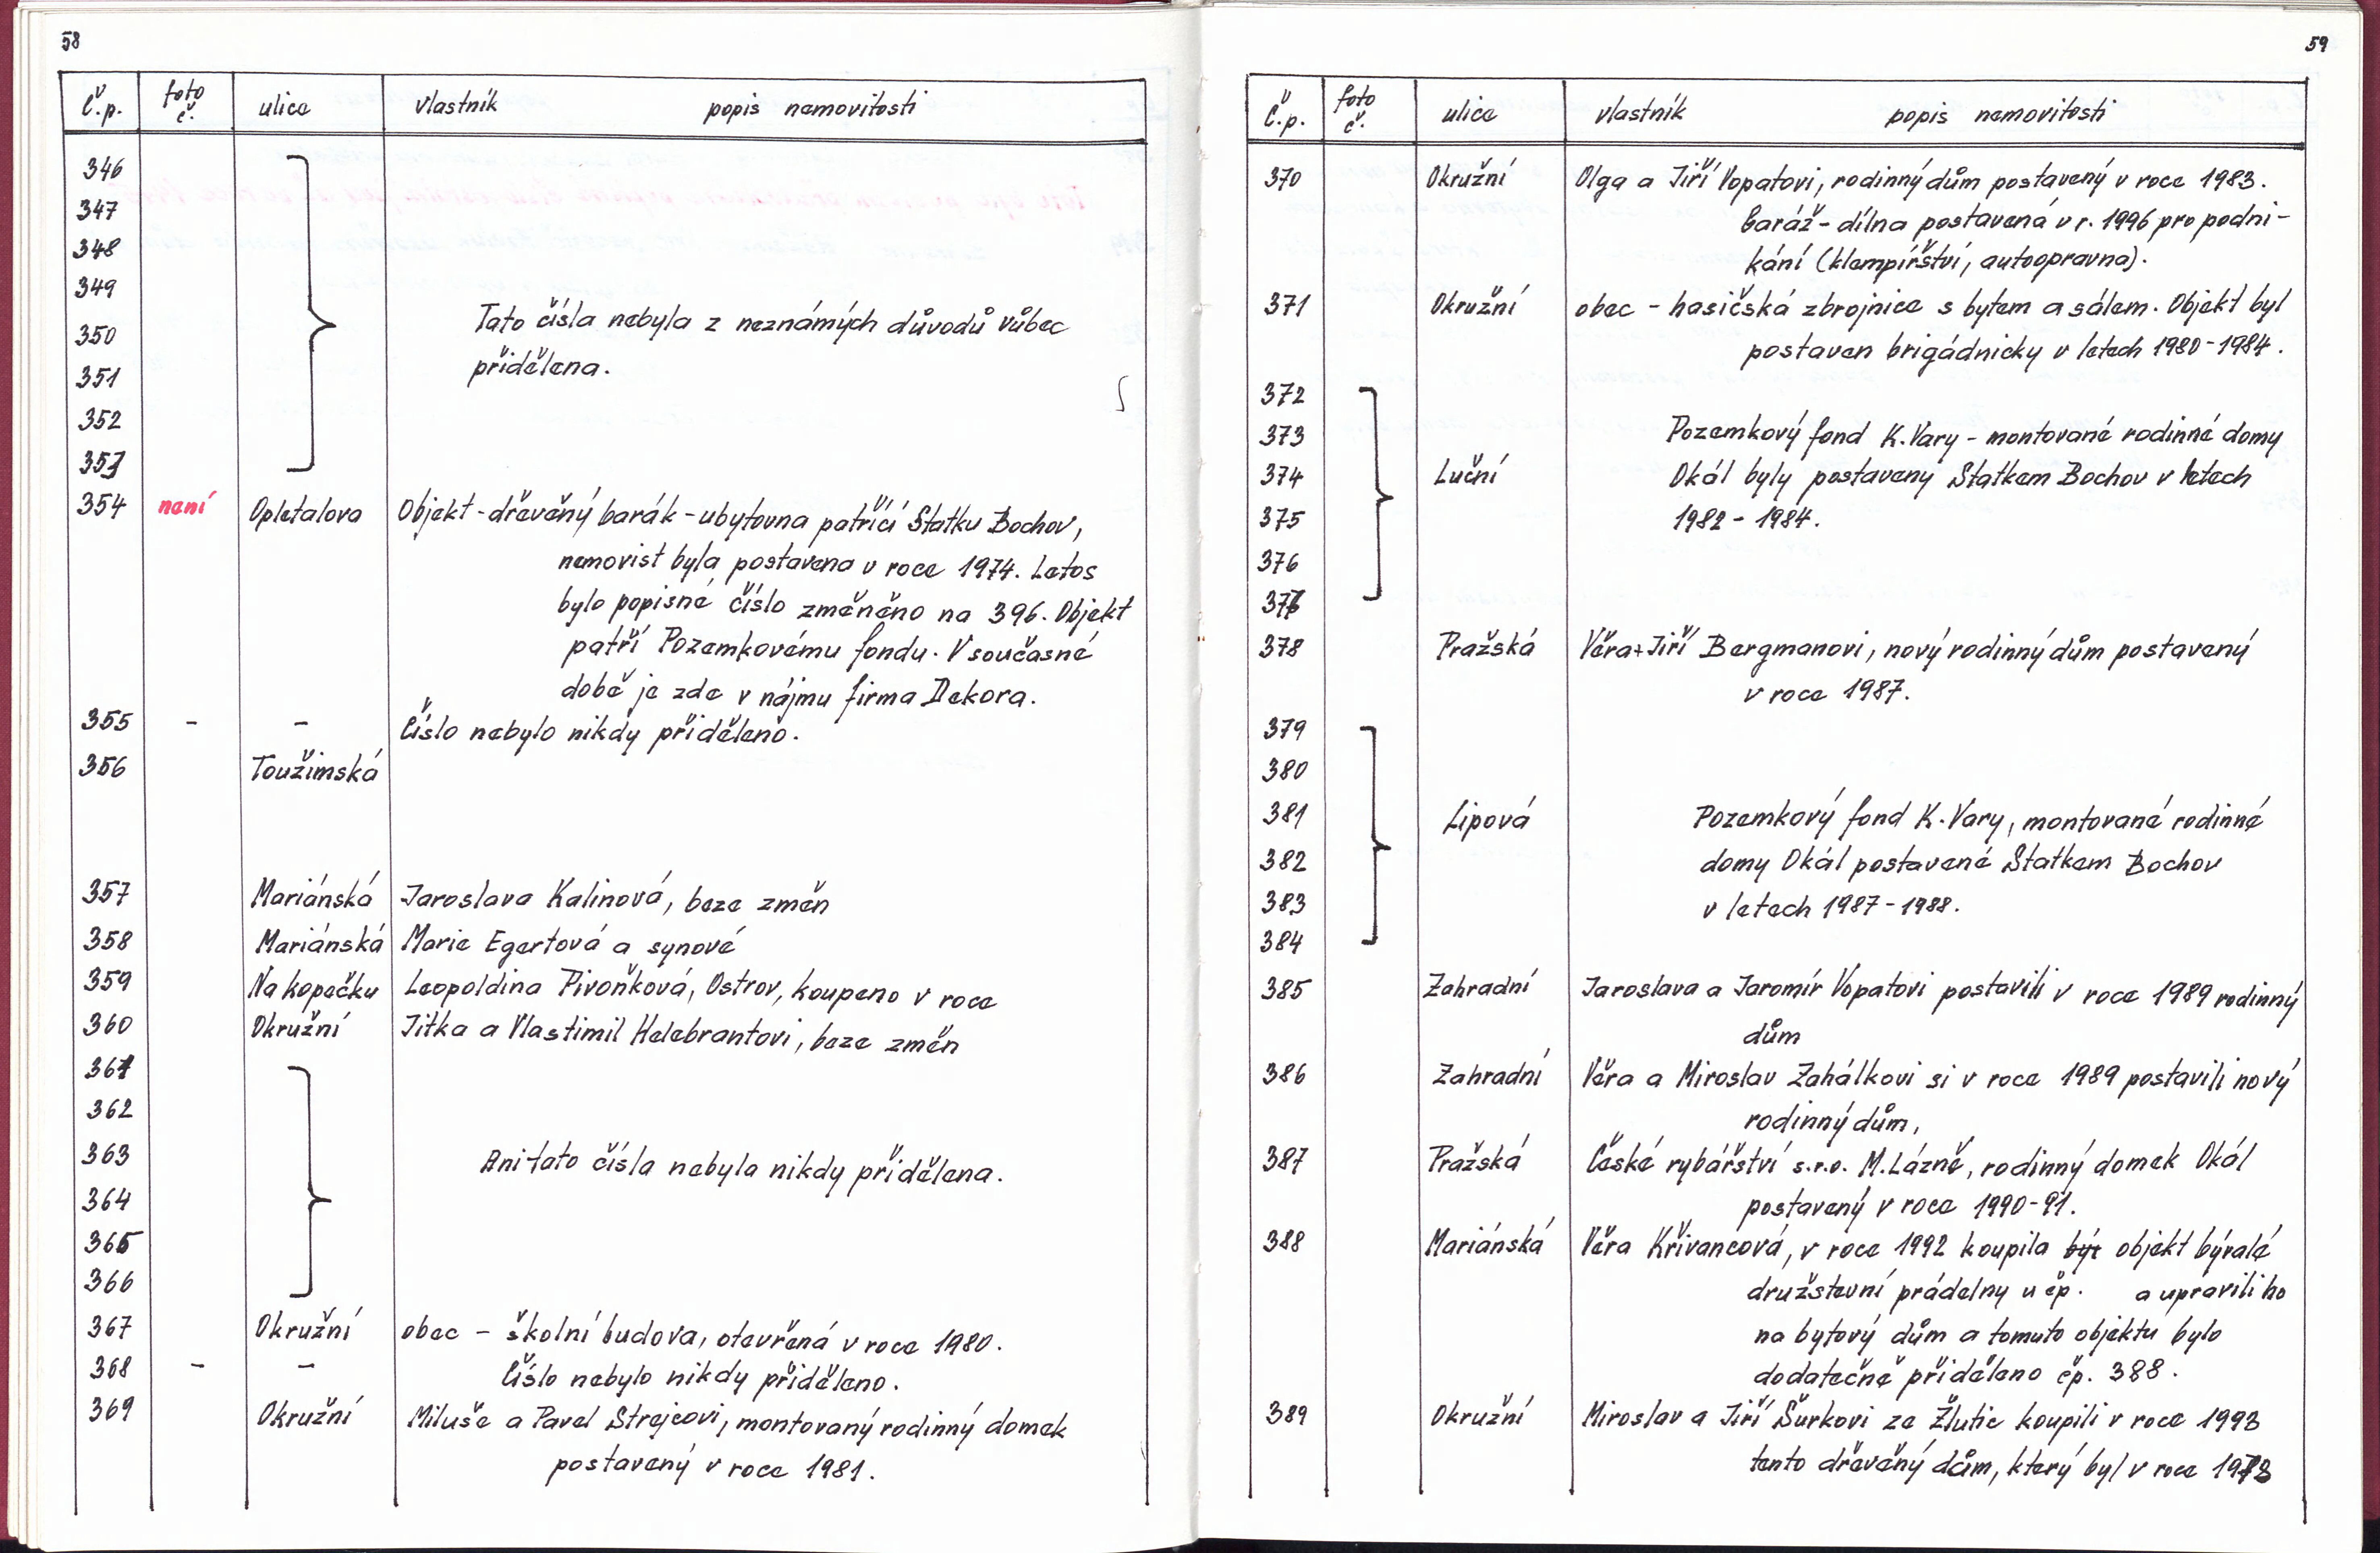 58
č.p. foto č. ulice vlastník popis nemovitosti
346
347
348
349
350 Tato čísla nebyla z neznámých důvodů vůbec
351 přidělena.
352
353
354 není Opletalova Objekt - dřevěný barák - ubytovna patřící Statku Bochov,
nemovist byla postavena v roce 1974. Letos
bylo popisné číslo změněno na 396. Objekt
patří Pozemkovému fondu. V současné
době je zde v nájmu firma Dekora.
355 - - Číslo nebylo nikdy přiděleno.
356 Toužimská
357 Mariánská Jaroslava Kalinová, beze změn
358 Mariánská Marie Egertová a synové
359 Na kopečku Leopoldina Pivoňková, Ostrov, koupeno v roce
360 Okružní Jitka a Vlastimil Helebrantovi, beze změn
361
362
363 Ani tato čísla nebyla nikdy přidělena.
364
365
366
367 Okružní obec - školní budova, otevřená v roce 1980.
368 - - Číslo nebylo nikdy přiděleno.
369 Okružní Miluše a Pavel Strejcovi, montovaný rodinný domek
postavený v roce 1981.
59
č.p. foto č. ulice vlastník popis nemovitosti
370 Okružní Olga a Jiří Vopatovi, rodinný dům postavený v roce 1983.
Garáž - dílna postavená v r. 1996 pro podni-
kání (klempířství, autoopravna).
371 Okružní obec - hasičská zbrojnice s bytem a sálem. Objekt byl
postaven brigádnicky v letech 1980-1984.
372
373 Pozemkový fond K. Vary - montované rodinné domy
374 Luční Okál byly postaveny Statkem Bochov v letech
375 1982 - 1984.
376
377
378 Pražská Věra + Jiří Bergmanovi, nový rodinný dům postavený
v roce 1987.
379
380
381 Lipová Pozemkový fond K. Vary, montované rodinné
382 domy Okál postavené Statkem Bochov
383 v letech 1987 - 1988.
384
385 Zahradní Jaroslava a Jaromír Vopatovi postavili v roce 1989 rodinný
dům
386 Zahradní Věra a Miroslav Zahálkovi si v roce 1989 postavili nový
rodinný dům,
387 Pražská České rybářství s.r.o. M. Lázně, rodinný domek Okál
postavený v roce 1990-91.
388 Mariánská Věra Křivancová, v roce 1992 koupila být objekt bývalé
družstevní prádelny u čp. a upravili ho
na bytový dům a tomuto objektu bylo
dodatečně přiděleno čp. 388.
389 Okružní Miroslav a Jiří Šurkovi ze Žlutic koupili v roce 1993
tento dřevěný dům, který byl v roce 1978